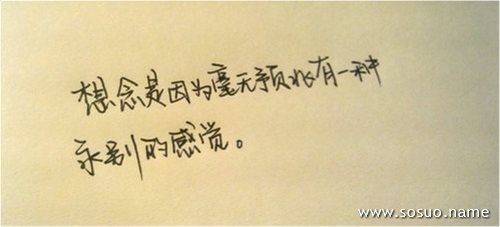 想念是因为毫无预兆有一种
永别的感觉。
www.sosuo.name